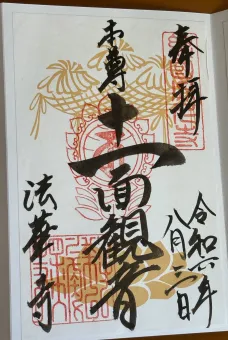 奉拝
令和六年
八月三日
本尊
十一面観音
法華寺